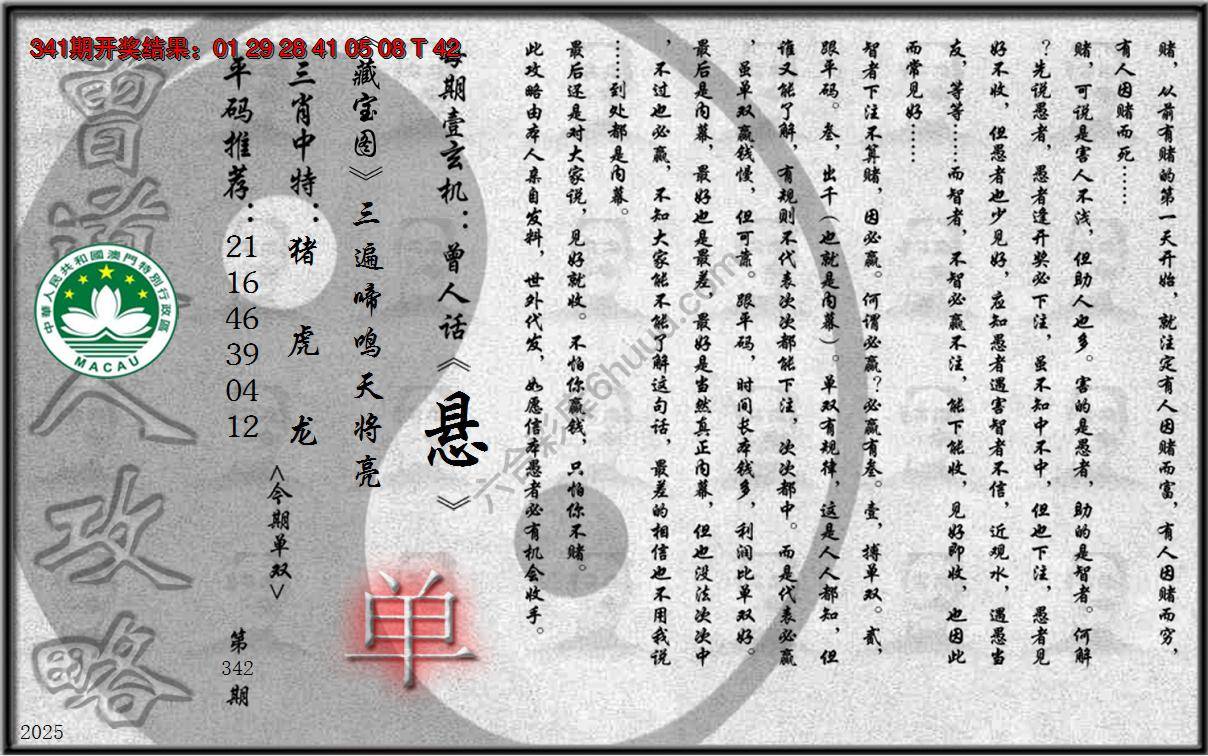 341期开奖结果：01 29 28 41 05 08 T 42
赌，从前有赌的第一天开始，就注定有人因赌而富，有人因赌而穷，
有人因赌而死……
赌，可说是害人不浅，但助人也多。害的是愚者，助的是智者。何解
？先说愚者，愚者逢开奖必下注，虽不知中不中，但也下注，愚者见
好不收，但愚者也少见好，应知愚者遇害智者不信，近观水，遇愚当
友，等等……而智者，不智必赢不注，能下能收，见好即收，也因此
而常见好……
智者下注不算赌，因必赢。何谓必赢？必赢有叁。壹，搏单双。贰，
跟平码。叁，出千（也就是内幕）。单双有规律，这是人人都知，但
谁又能了解，有规则不代表次次都能下注，次次都中。而是代表必赢
，虽单双赢钱慢，但可靠。跟平码，时间长本钱多，利润比单双好。
最后是内幕，最好也是最差，最好是当然真正内幕，但也没法次次中
，不过也必赢，不知大家能不能了解这句话，最差的相信也不用我说
……到处都是内幕。
最后还是对大家说，见好就收。不怕你赢钱，只怕你不赌。
此攻略由本人亲自发料，世外代发，如愿信本愚者必有机会收手。
每期壹玄机：曾人话《悬》
《藏宝图》三遍啼鸣天将亮
三肖中特：猪 虎 龙
平码推荐：21 16 46 39 04 12
<今期单双>
单
第342期
曾道人攻略
中華人民共和國澳門特別行政區
MACAU
六合彩库6huuu.com
2025